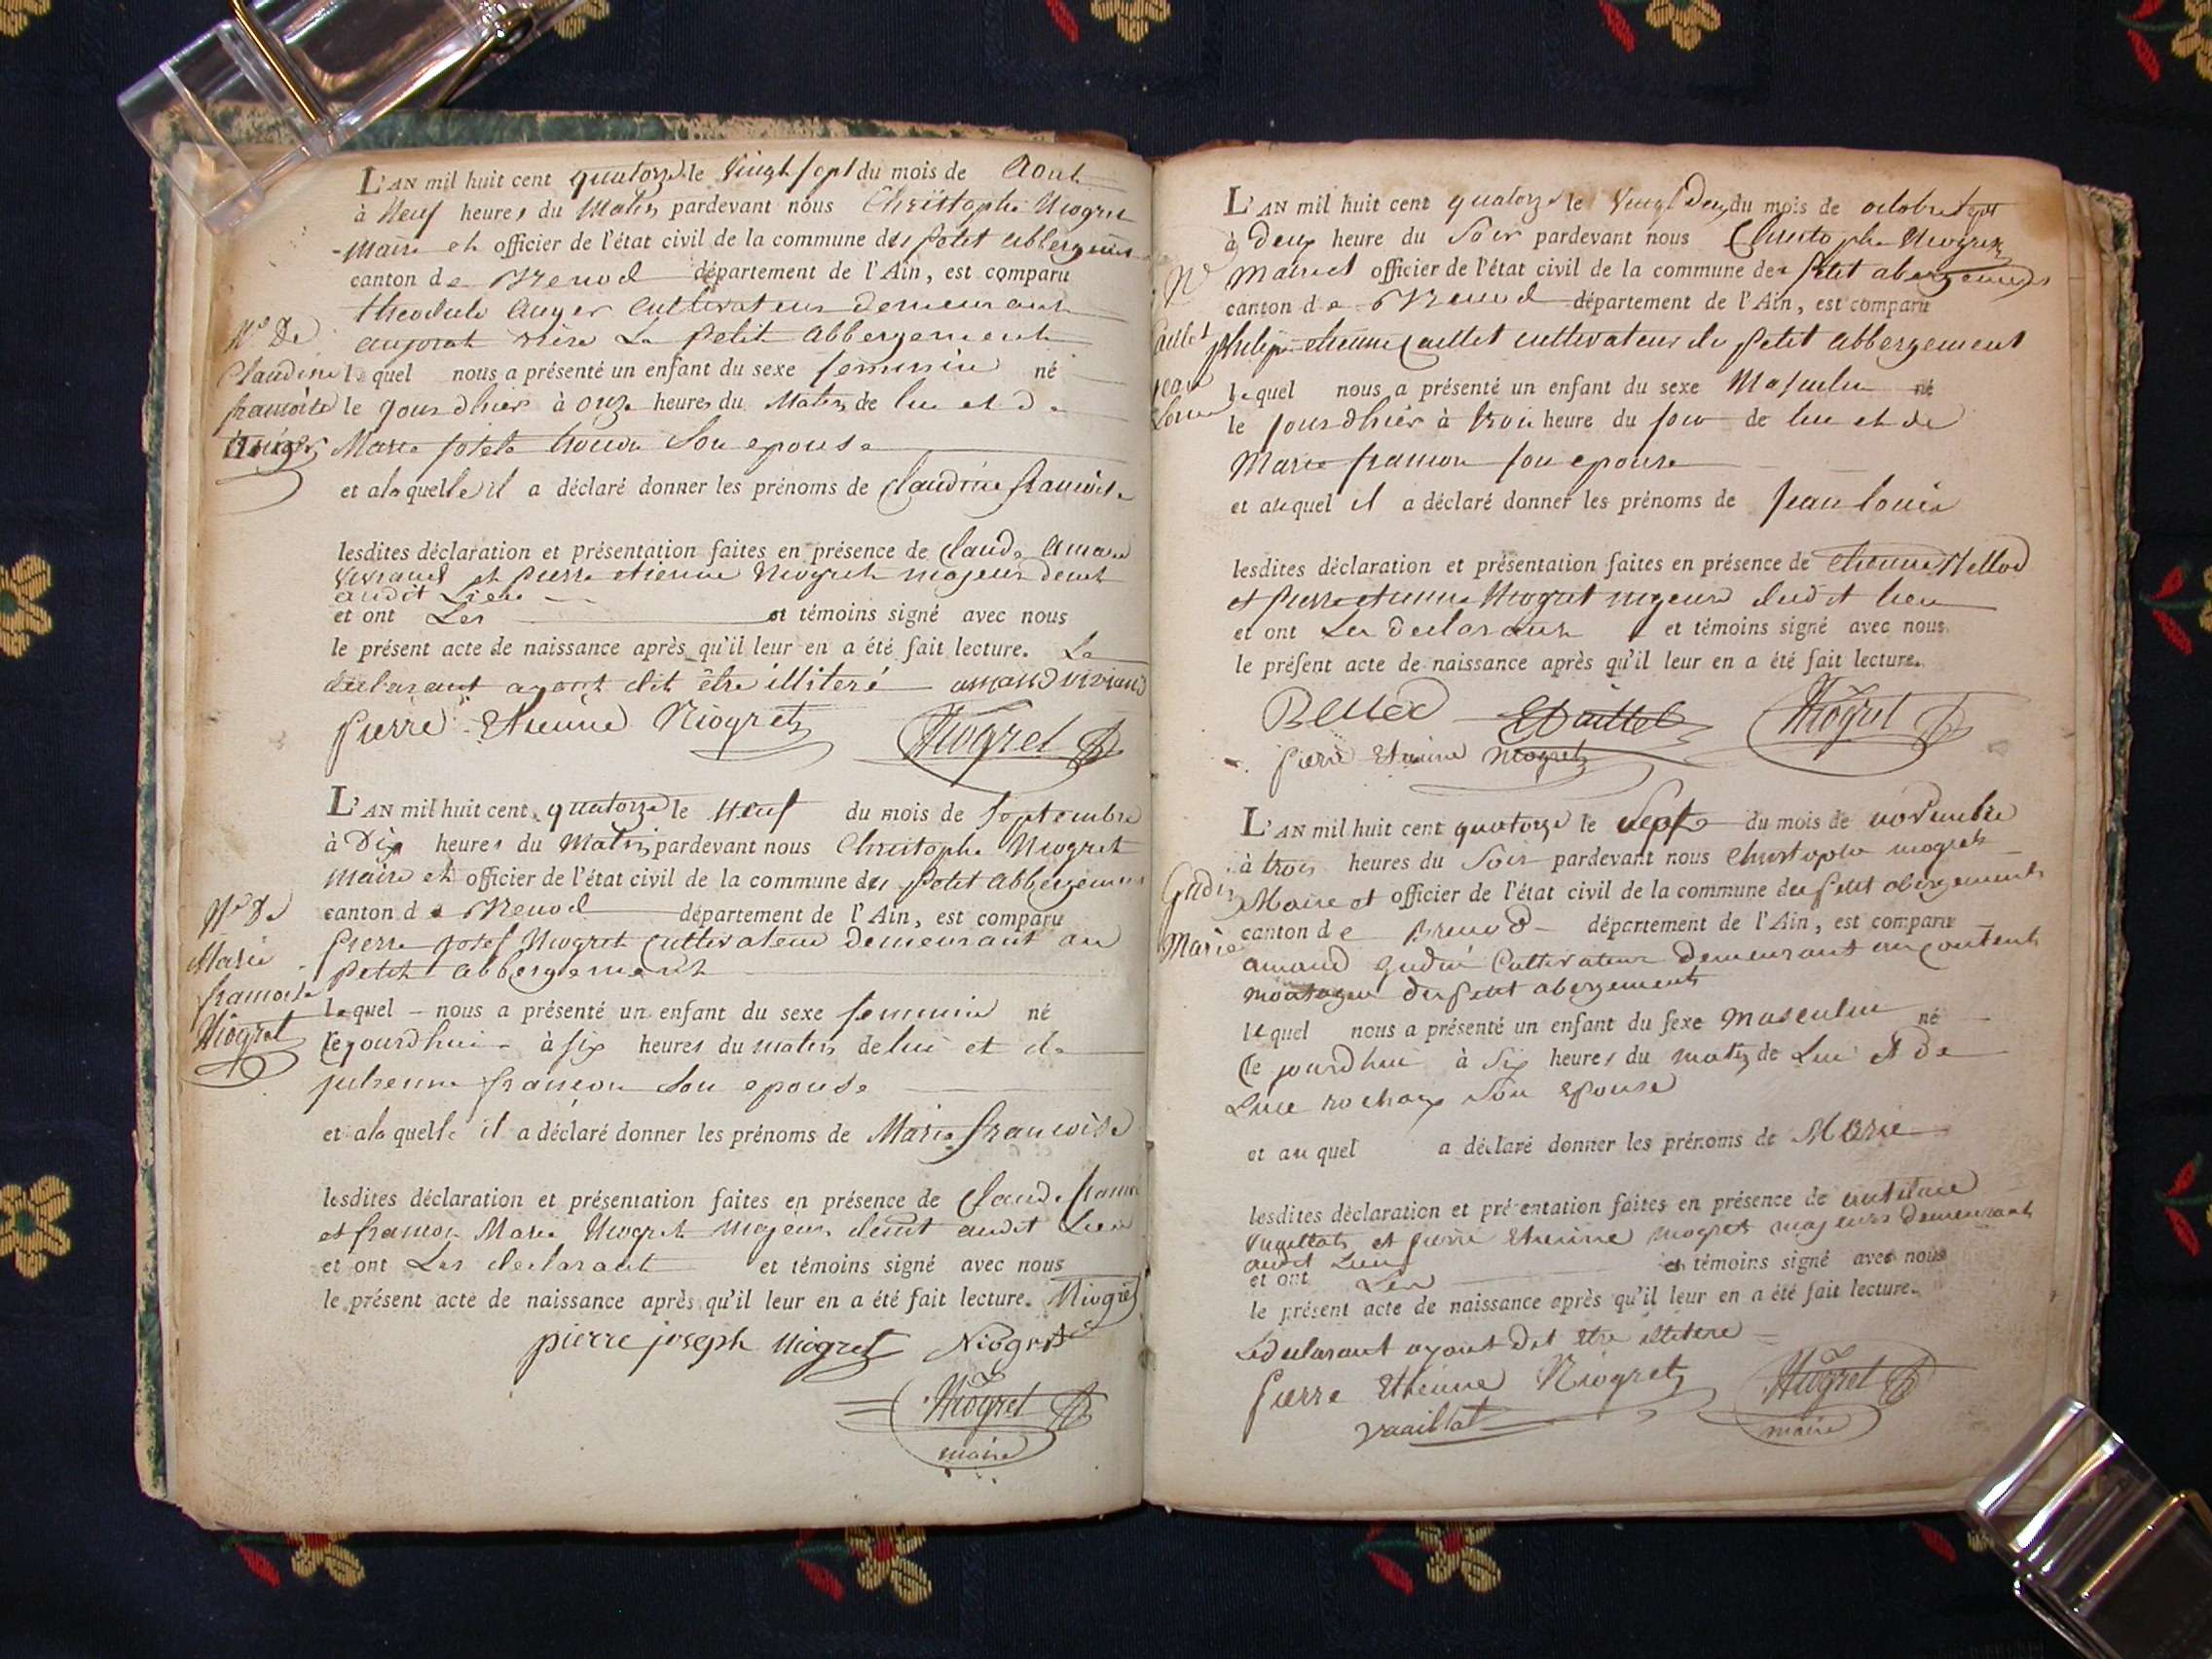 L'AN mil huit cent quatorze le vingt sept du mois de Aout
à Neuf heures du Matin pardevant nous Christophe Niogret
Maire et officier de l'état civil de la commune des petit abbergement
canton de Brenod département de l'Ain, est comparu
theodule Auger cultivateur demeurant
au petit abbergement
Nce De
Claudine
francoise
Auger
lequel nous a présenté un enfant du sexe feminin né
le jour dhier à onze heures du Matin de lui et de
Marie josete son epouse
et a laquelle il a déclaré donner les prénoms de Claudine francoise
lesdites déclaration et présentation faites en présence de Claude Amand
Viviand et pierre etienne Niogret majeur demt
audit Lieu
et ont Les et témoins signé avec nous
le présent acte de naissance après qu'il leur en a été fait lecture. Le
declarant ayant dit être illiteré amand viviand
pierre Etienne Niogret Niogret
L'AN mil huit cent quatorze le Neuf du mois de septembre
à Dix heures du Matin pardevant nous Christophe Niogret
Maire et officier de l'état civil de la commune des petit abbergement
Nce De
Marie
francoise
Niogret
canton de Brenod département de l'Ain, est comparu
pierre josef Niogret cultivateur demeurant au
petit abbergement
lequel nous a présenté un enfant du sexe feminin né
Cejourdhui à six heures du matin de lui et de
julienne francon son epouse
et a laquelle il a déclaré donner les prénoms de Marie francoise
lesdites déclaration et présentation faites en présence de Claude
et francois Marie Niogret majeurs demt audit Lieu
et ont Les declarant et témoins signé avec nous
le présent acte de naissance après qu'il leur en a été fait lecture. Niogret
pierre joseph Niogret Niogret
Niogret
maire
L'AN mil huit cent quatorze le vingt deux du mois de octobre
à deux heure du soir pardevant nous Christophe Niogret
Maire et officier de l'état civil de la commune des petit abergement
canton de Brenod département de l'Ain, est comparu
Nce
Caillet
jean
Louis
philipe etienne Caillet cultivateur du petit abbergement
lequel nous a présenté un enfant du sexe Masculin né
le jour dhier à trois heure du soir de lui et de
Marie francon son epouse
et auquel il a déclaré donner les prénoms de jean louis
lesdites déclaration et présentation faites en présence de etienne
et pierre etienne Niogret majeurs dudit lieu
et ont Les declarant et témoins signé avec nous
le présent acte de naissance après qu'il leur en a été fait lecture.
Niogret
pierre Etienne Niogret
L'AN mil huit cent quatorze le sept du mois de novembre
à trois heures du soir pardevant nous Christophe niogret
Gudin
Marie
Maire et officier de l'état civil de la commune du petit abergement
canton de Brenod département de l'Ain, est comparu
amand gudin Cultivateur demeurant au
du petit abergement
lequel nous a présenté un enfant du sexe masculin né
Ce jourdhui à six heures du matin de Lui et de
Luce rochaix son Epouse
et auquel a déclaré donner les prénoms de Marie
lesdites déclaration et présentation faites en présence de
et pierre Etienne niogret majeurs demeurant
audit Lieu
et ont Les et témoins signé avec nous
le présent acte de naissance après qu'il leur en a été fait lecture.
Le declarant ayant dit etre illitere
pierre Etienne Niogret Niogret
maire